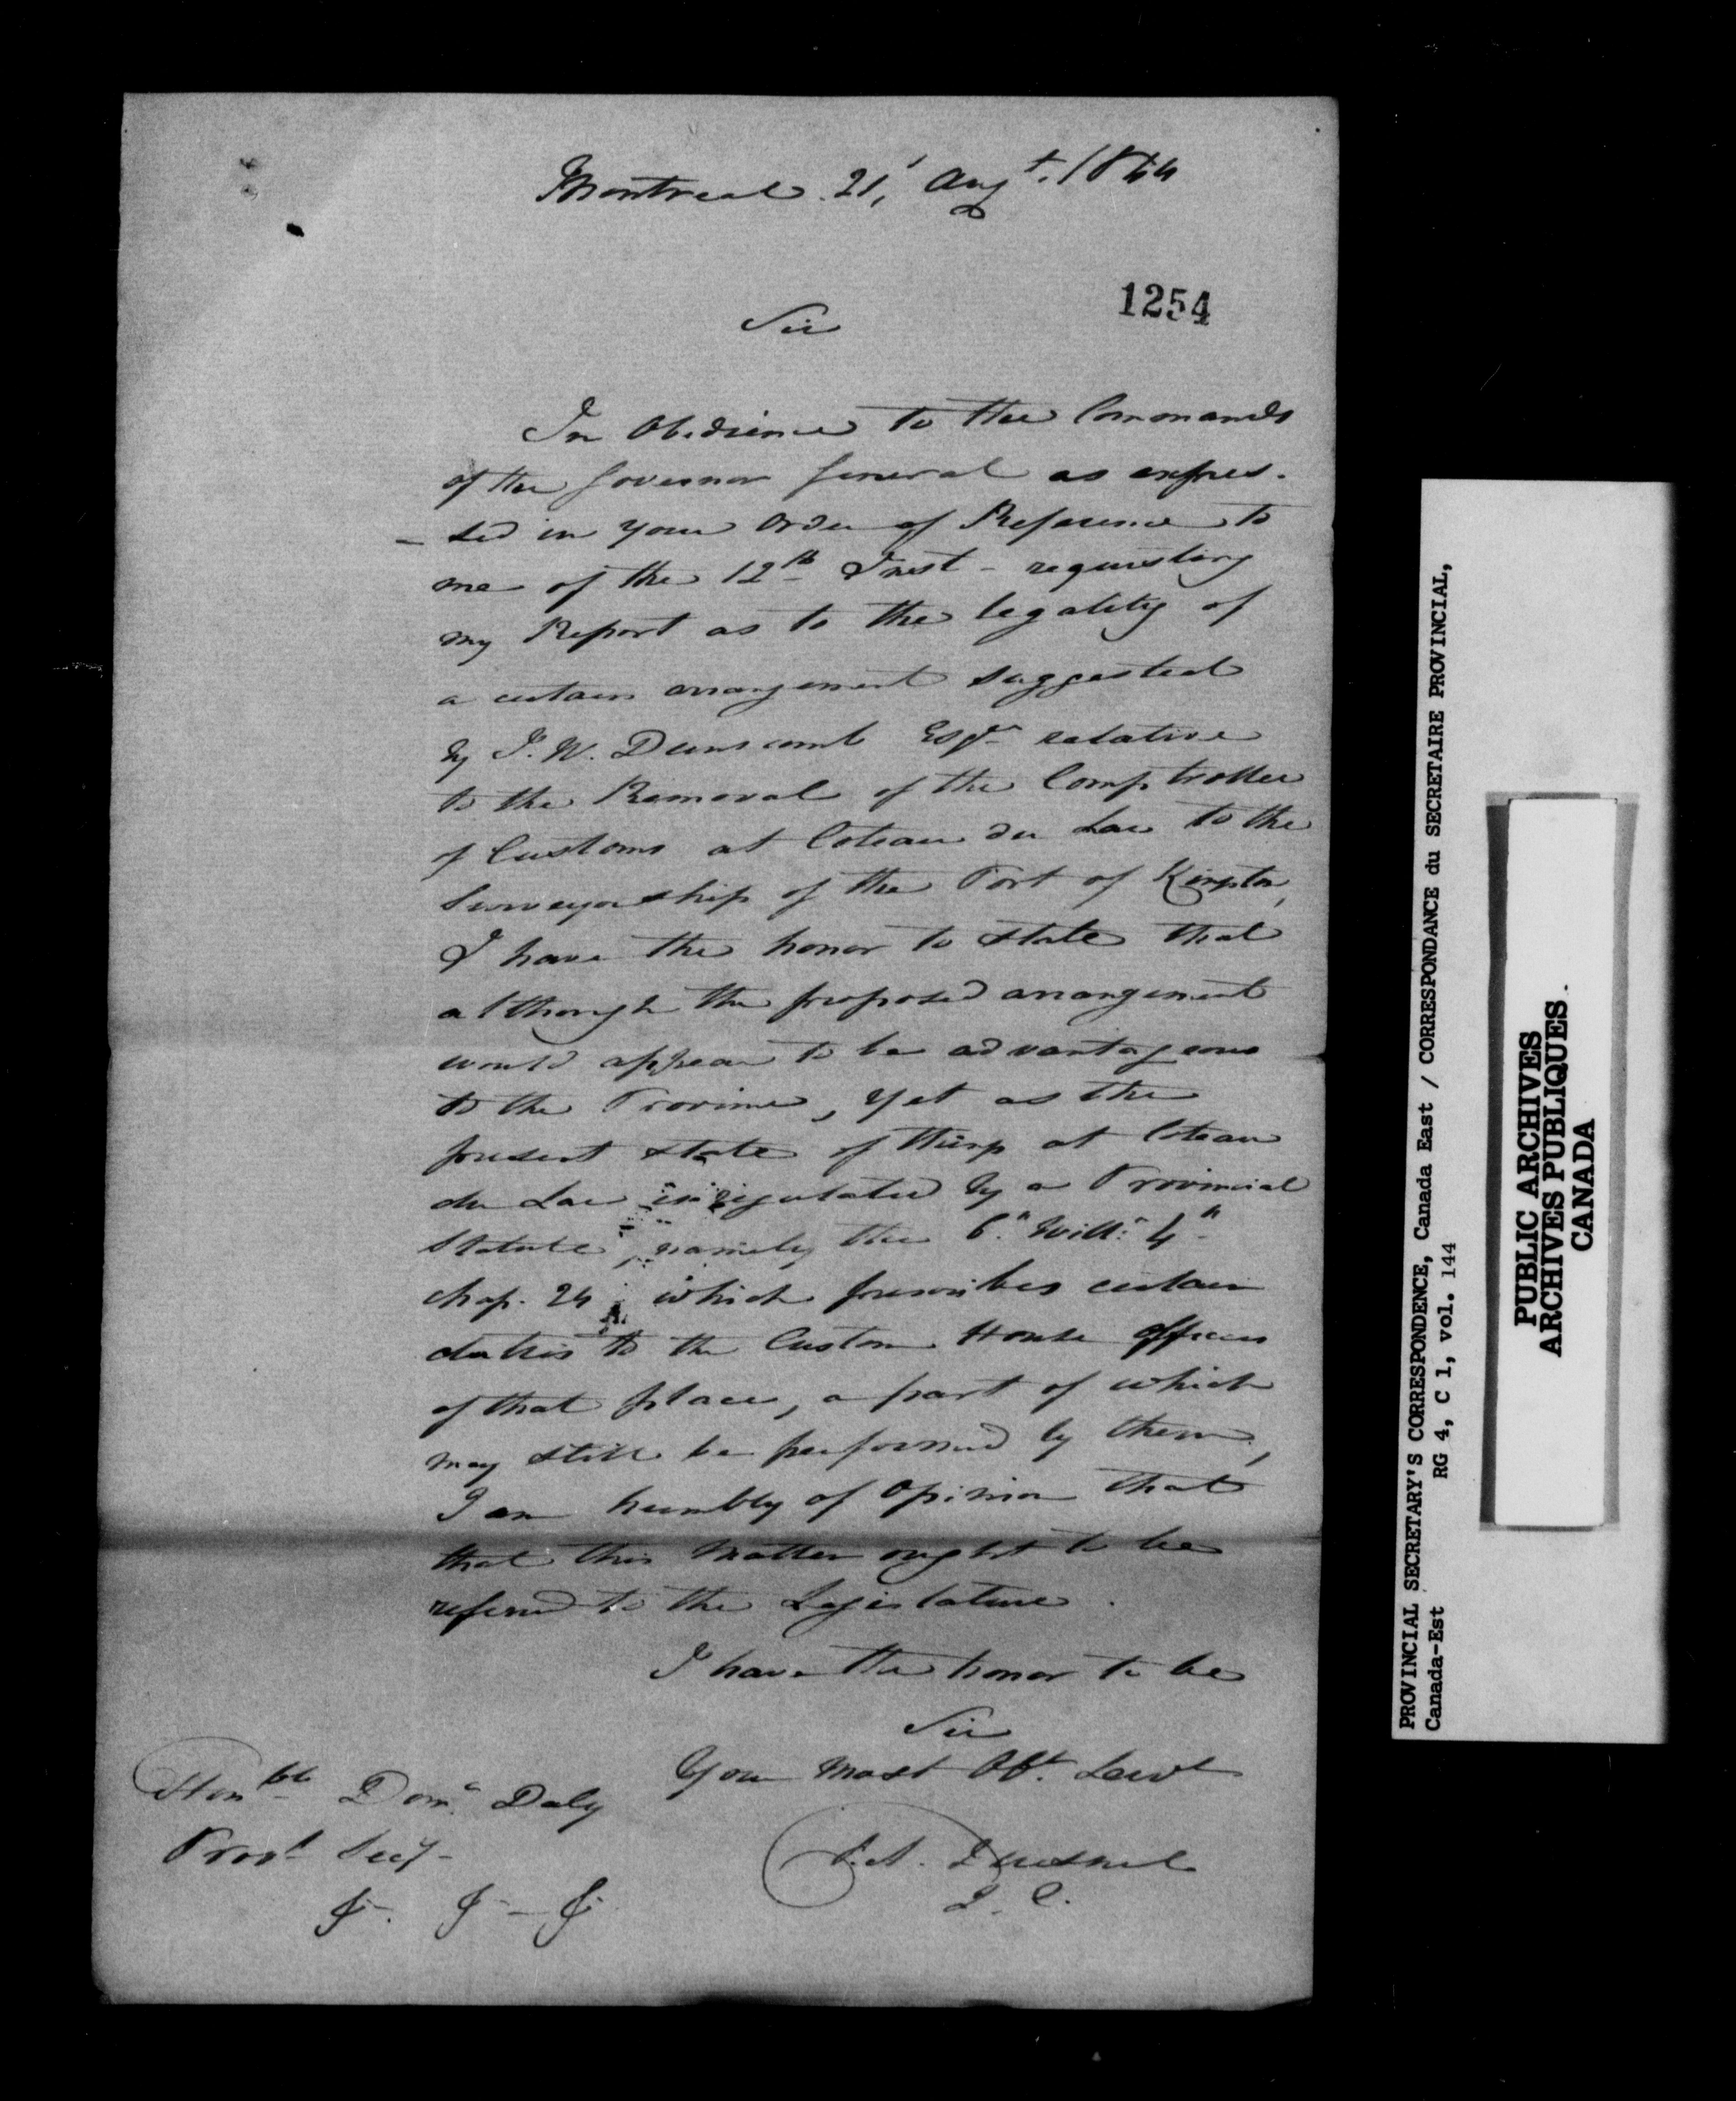 Montreal 21, Augt. 1844
1254
Sir
In Obedience to the Commands
of the Governor General as expres-
-sed in your Order of Reference to
me of the 12th Inst - requesting
my Report as to the legality of
a certain arrangement suggested
by J. W. Dunscomb Esqr relative
to the Removal of the Comptroller
of Customs at Coteau du Lac to the
Surveyorship of the Port of Kingston,
I have the honor to state that
although the proposed arrangement
would appear to be advantageous
to the Province, yet as the
present state of things at Coteau
du Lac is regulated by a Provincial
Statute, namely the 6th Will: 4th
chap. 24, which prescribes certain
duties to the Custom House officers
of that place, a part of which
may still be performed by them,
I am humbly of Opinion that
that this Matter ought to be
referred to the Legislature.
I have the honor to be
Sir
Your Most Obt. Servt
Honble Domk Daly
Provl Secy-
Duesnel
Q. C.
PROVINCIAL SECRETARY'S CORRESPONDENCE, Canada East / CORRESPONDANCE du SECRETAIRE PROVINCIAL,
Canada-Est RG 4, C 1, vol. 144
PUBLIC ARCHIVES
ARCHIVES PUBLIQUES
CANADA